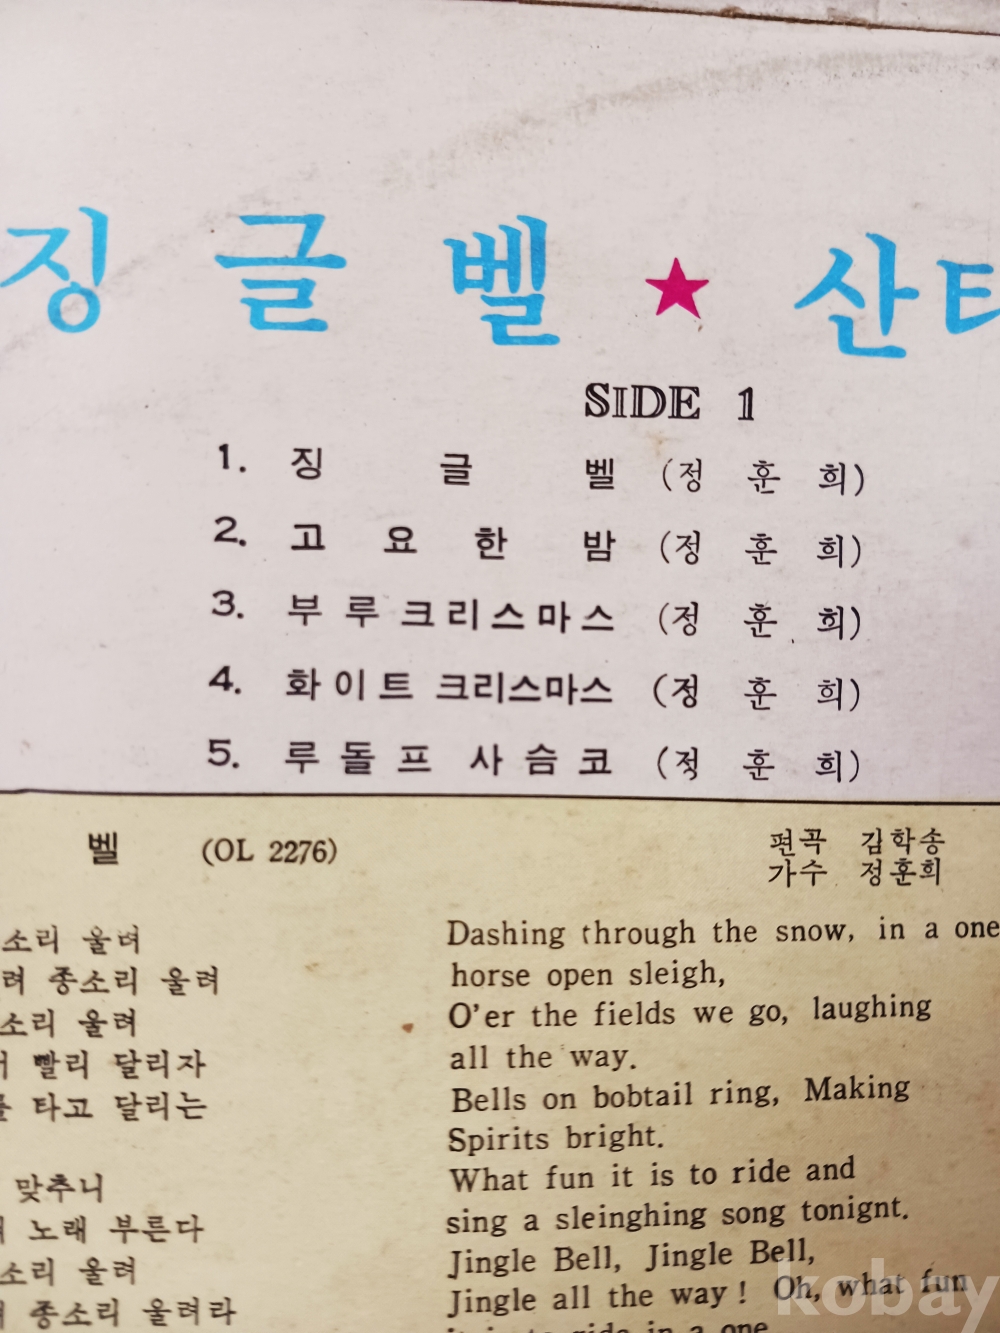 징글벨 ★ 산타
SIDE 1
1. 징글벨 (정훈희)
2. 고요한밤 (정훈희)
3. 부루크리스마스 (정훈희)
4. 화이트 크리스마스 (정훈희)
5. 루돌프 사슴코 (정훈희)
벨 (OL 2276)
편곡 김학송
가수 정훈희
소리 울려
려 종소리 울려
소리 울려
빨리 달리자
타고 달리는
맞추니
노래 부른다
소리 울려
종소리 울려라
Dashing through the snow, in a one
horse open sleigh,
O'er the fields we go, laughing
all the way.
Bells on bobtail ring, Making
Spirits bright.
What fun it is to ride and
sing a sleinghing song tonignt.
Jingle Bell, Jingle Bell,
Jingle all the way! Oh, what fun
it is to ride in a one
kobay